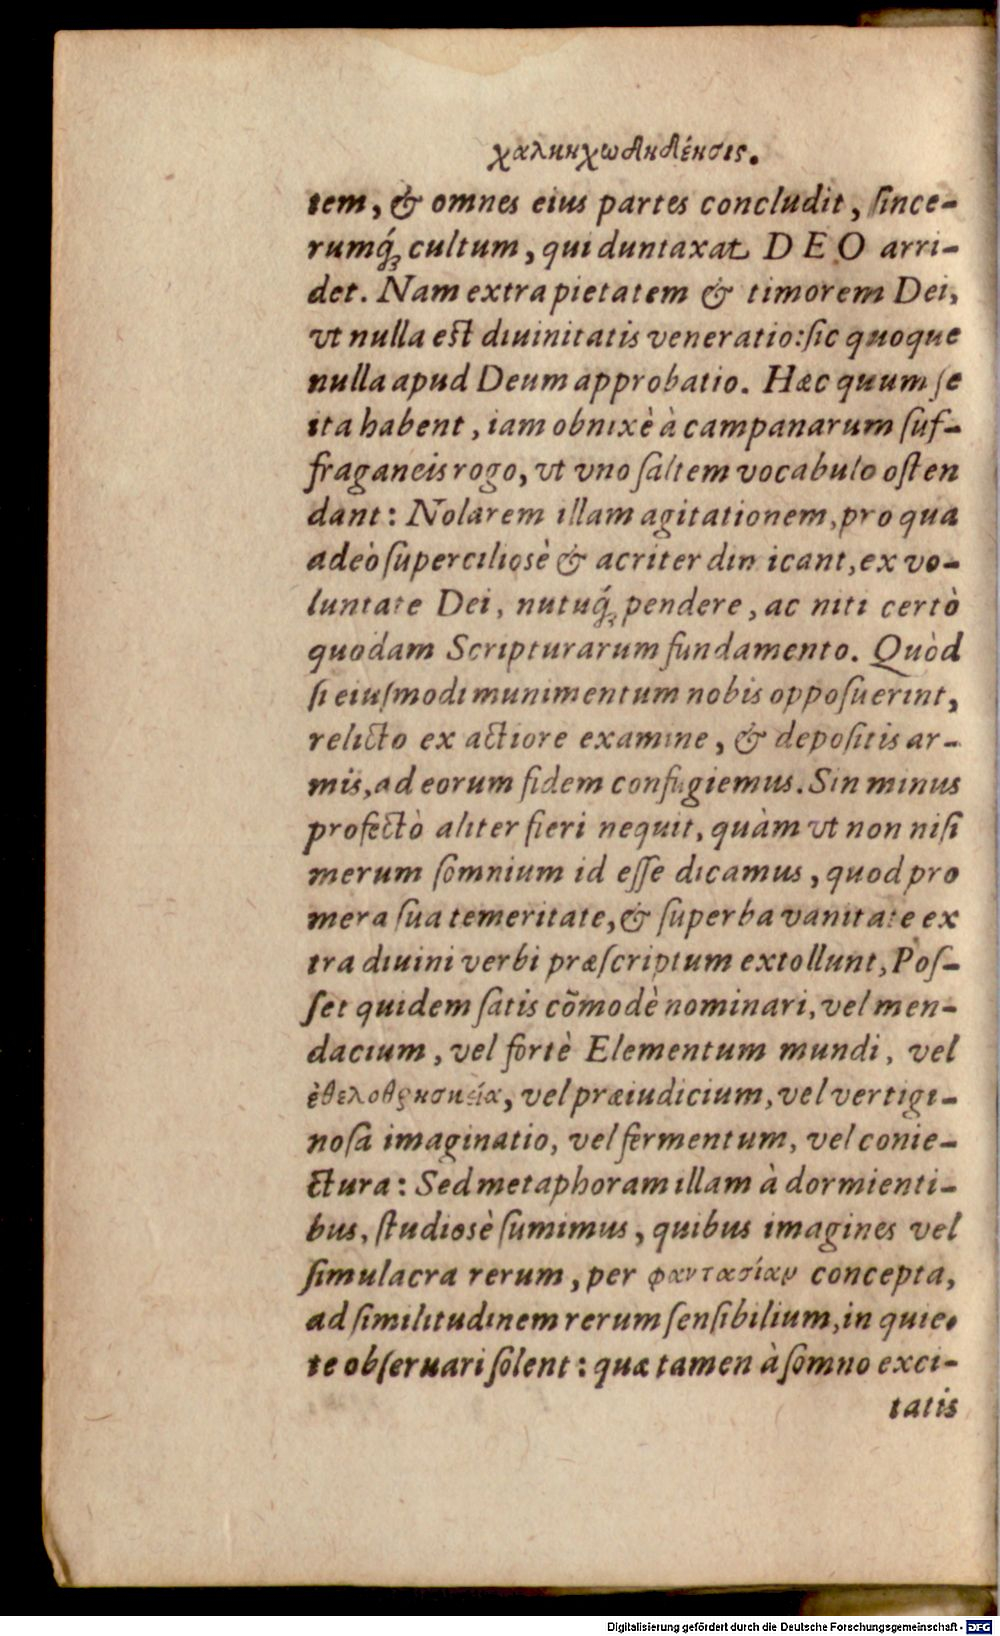 χαλκηχωδηδένσις.
tem, & omnes eius partes concludit, ſince-
rumq́; cultum, qui duntaxat DEO arri-
det. Nam extra pietatem & timorem Dei,
vt nulla est diuinitatis veneratio: ſic quoque
nulla apud Deum approbatio. Hæc quum ſe
ita habent, iam obnixè à campanarum ſuf-
fraganeis rogo, vt vno ſaltem vocabulo oſten
dant: Nolarem illam agitationem, pro qua
adeò ſuperciliosè & acriter dimicant, ex vo-
luntate Dei, nutuq́; pendere, ac niti certò
quodam Scripturarum fundamento. Quòd
ſi eiuſmodi munimentum nobis oppoſuerint,
relicto ex actiore examine, & depoſitis ar-
mis, ad eorum fidem confugiemus. Sin minus
profectò aliter fieri nequit, quàm vt non niſi
merum ſomnium id eſſe dicamus, quod pro
mera ſua temeritate, & ſuperba vanitate ex
tra diuini verbi præſcriptum extollunt, Poſ-
ſet quidem ſatis cõmodè nominari, vel men-
dacium, vel fortè Elementum mundi, vel
ἐθελοθρησκεία, vel præiudicium, vel vertigi-
noſa imaginatio, vel fermentum, vel conie-
ctura: Sed metaphoram illam à dormienti-
bus, ſtudiosè ſumimus, quibus imagines vel
ſimulacra rerum, per φαντασίαν concepta,
ad ſimilitudinem rerum ſenſibilium, in quie-
te obſeruari ſolent: quæ tamen à ſomno exci-
tatis
Digitalisierung gefördert durch die Deutsche Forschungsgemeinschaft - DFG